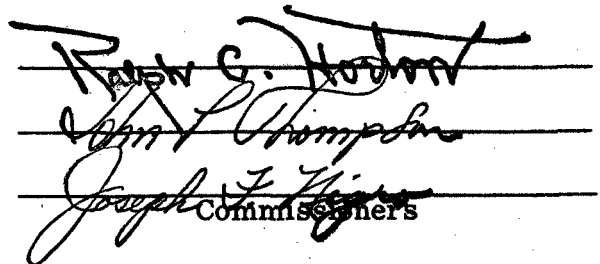 Ralph C. Horton
John P Thompson
Joseph F.
Commissioners